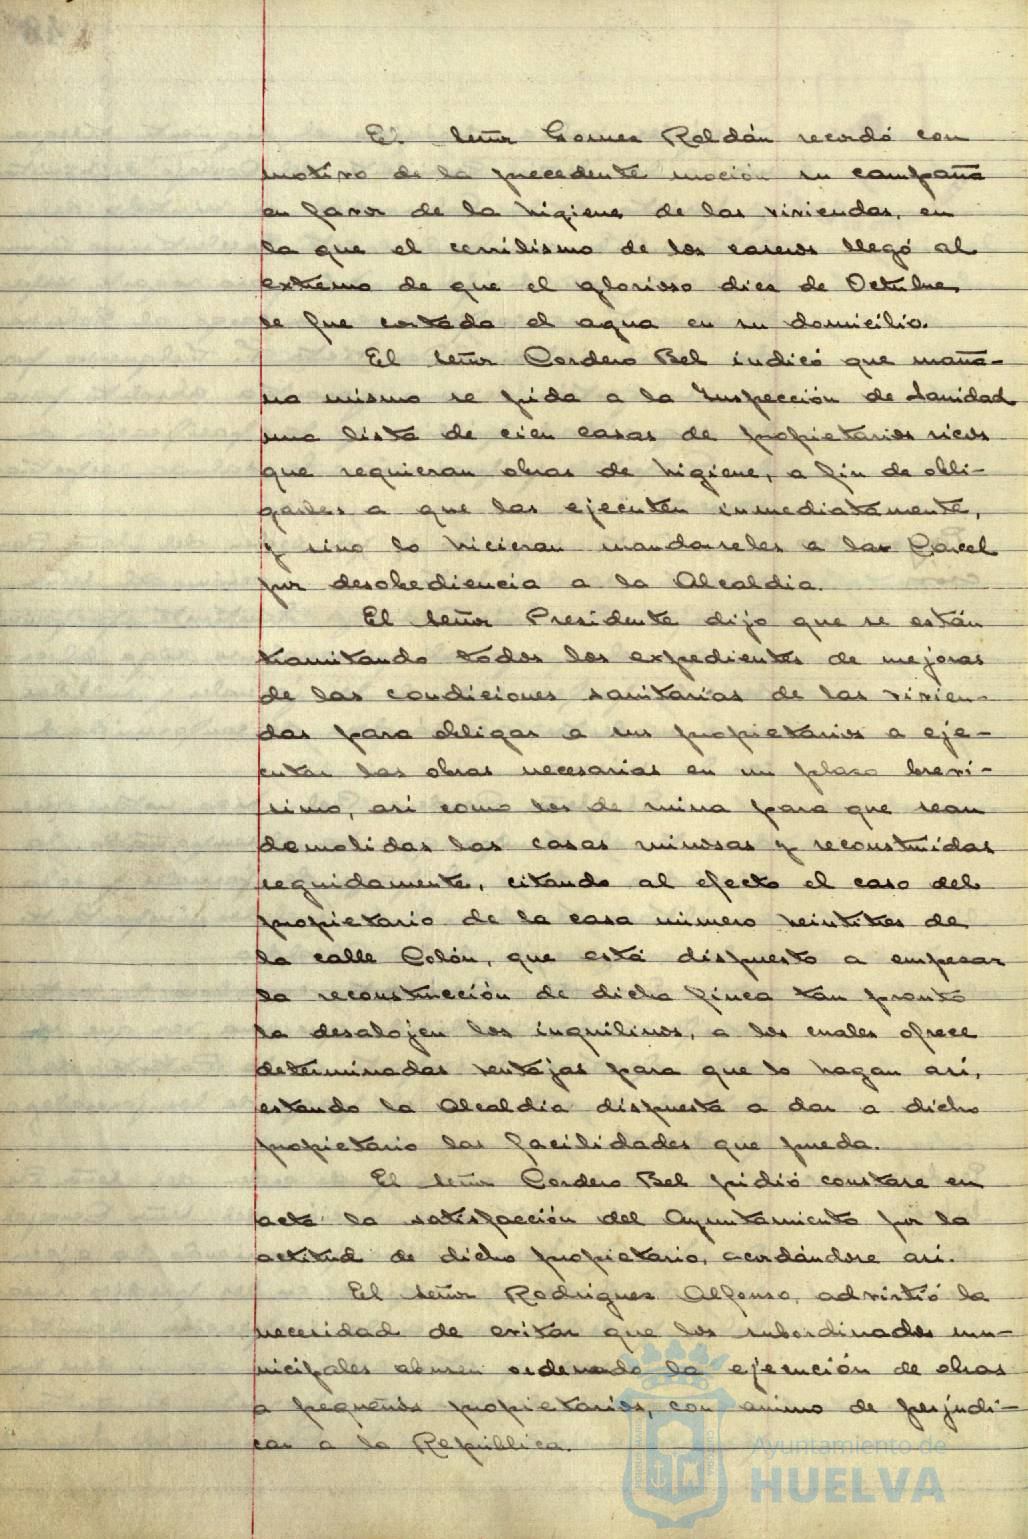 El señor Gomez Roldán recordó con
motivo de la precedente moción su campaña
en favor de la higiene de las viviendas, en
la que el cerrilismo de los caseros llegó al
extremo de que el glorioso diez de Octubre,
le fue cortada el agua en su domicilio.
El señor Cordero Bel indicó que maña-
na mismo se pida a la Inspección de Sanidad
una lista de cien casas de propietarios ricos
que requieran obras de higiene, a fin de obli-
garles a que las ejecuten inmediatamente,
y sino lo hicieran mandarseles a la Carcel
por desobediencia a la Alcaldia.
El señor Presidente dijo que se están
tramitando todos los expedientes de mejoras
de las condiciones sanitarias de las vivien-
das para obligar a sus propietarios a eje-
cutar las obras necesarias en un plazo breví-
simo, así como los de ruina para que sean
demolidas las casas ruinosas y reconstruidas
seguidamente, citando al efecto el caso del
propietario de la casa número veintitres de
la calle Colón, que está dispuesto a empezar
la reconstrucción de dicha finca tan pronto
la desalojen los inquilinos, a los cuales ofrece
determinadas ventajas para que lo hagan así,
estando la Alcaldía dispuesta a dar a dicho
propietario las facilidades que pueda.
El señor Cordero Bel pidió constase en
acta la satisfacción del Ayuntamiento por la
actitud de dicho propietario, acordándose así.
El señor Rodriguez Alfonso, advirtió la
necesidad de evitar que los subordinados mu-
nicipales abusen ordenado la ejecución de obras
a pequeños propietarios, con animo de perjudi-
car a la República.
Ayuntamiento de
HUELVA